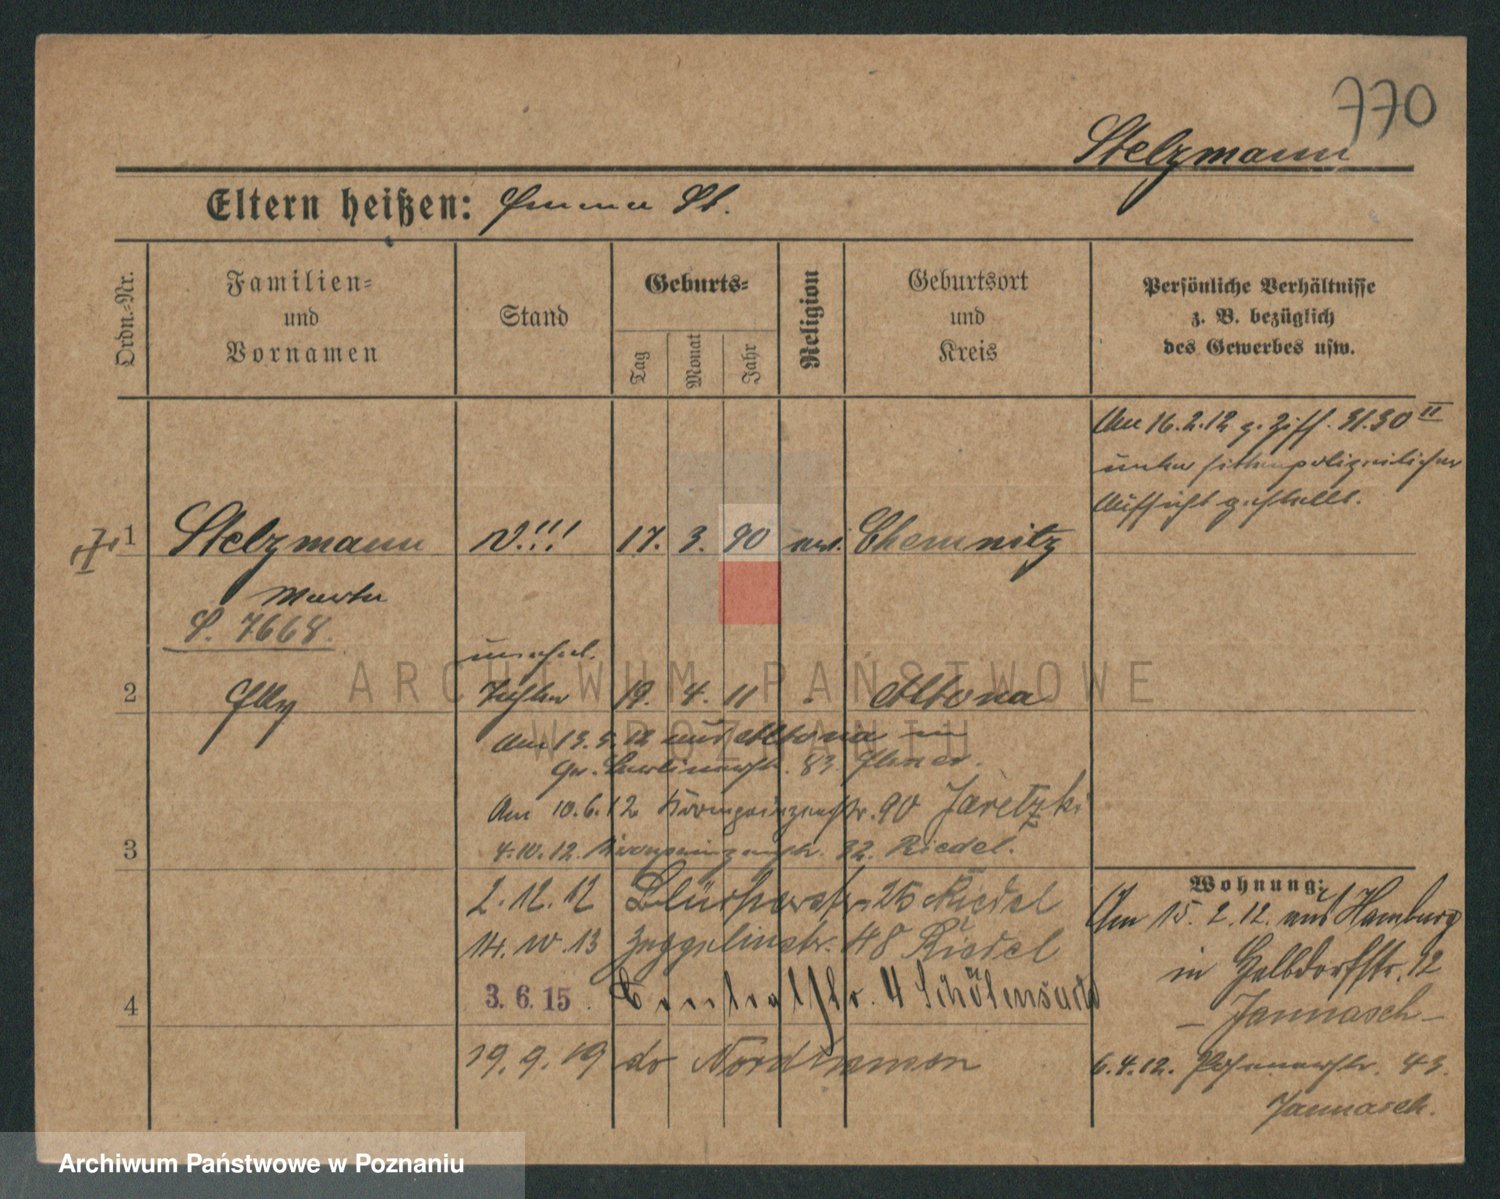 770
Stelzmann
Eltern heißen: Emma St.
Ordn.-Nr.
Familien-
und
Vornamen
Stand
Geburts-
Tag
Monat
Jahr
Religion
Geburtsort
und
Kreis
Persönliche Verhältnisse
z. B. bezüglich
des Gewerbes usw.
Am 16.2.12 g. Ziff. 31.30 II
unter sittenpolizeilicher
Aufsicht gestellt.
1 Stelzmann 17. 3. 90 Chemnitz
Martha
S. 7668.
unehel.
2 Elly Tochter 19. 4. 11 Altona
Am 13. 12 aus Altona in
Gr. Berlinerstr. 83.
Am 10.6.12 Kronprinzenstr. 90 Jaretzki
3 4.10.12. Kronprinzenstr. 32. Riedel.
Wohnung:
2.12.12 Blücherstr. 25 Riedel
Am 15. 2. 12. aus Hamburg
14.10.13 Zeppelinstr. 48 Riedel
in Gelbdorfstr. 12
4 3. 6. 15 Centralstr. 4
– Jannasch –
19.9.19 do
6.4.12. Posenerstr. 43.
Jannasch.
ARCHIWUM PAŃSTWOWE
W POZNANIU
Archiwum Państwowe w Poznaniu